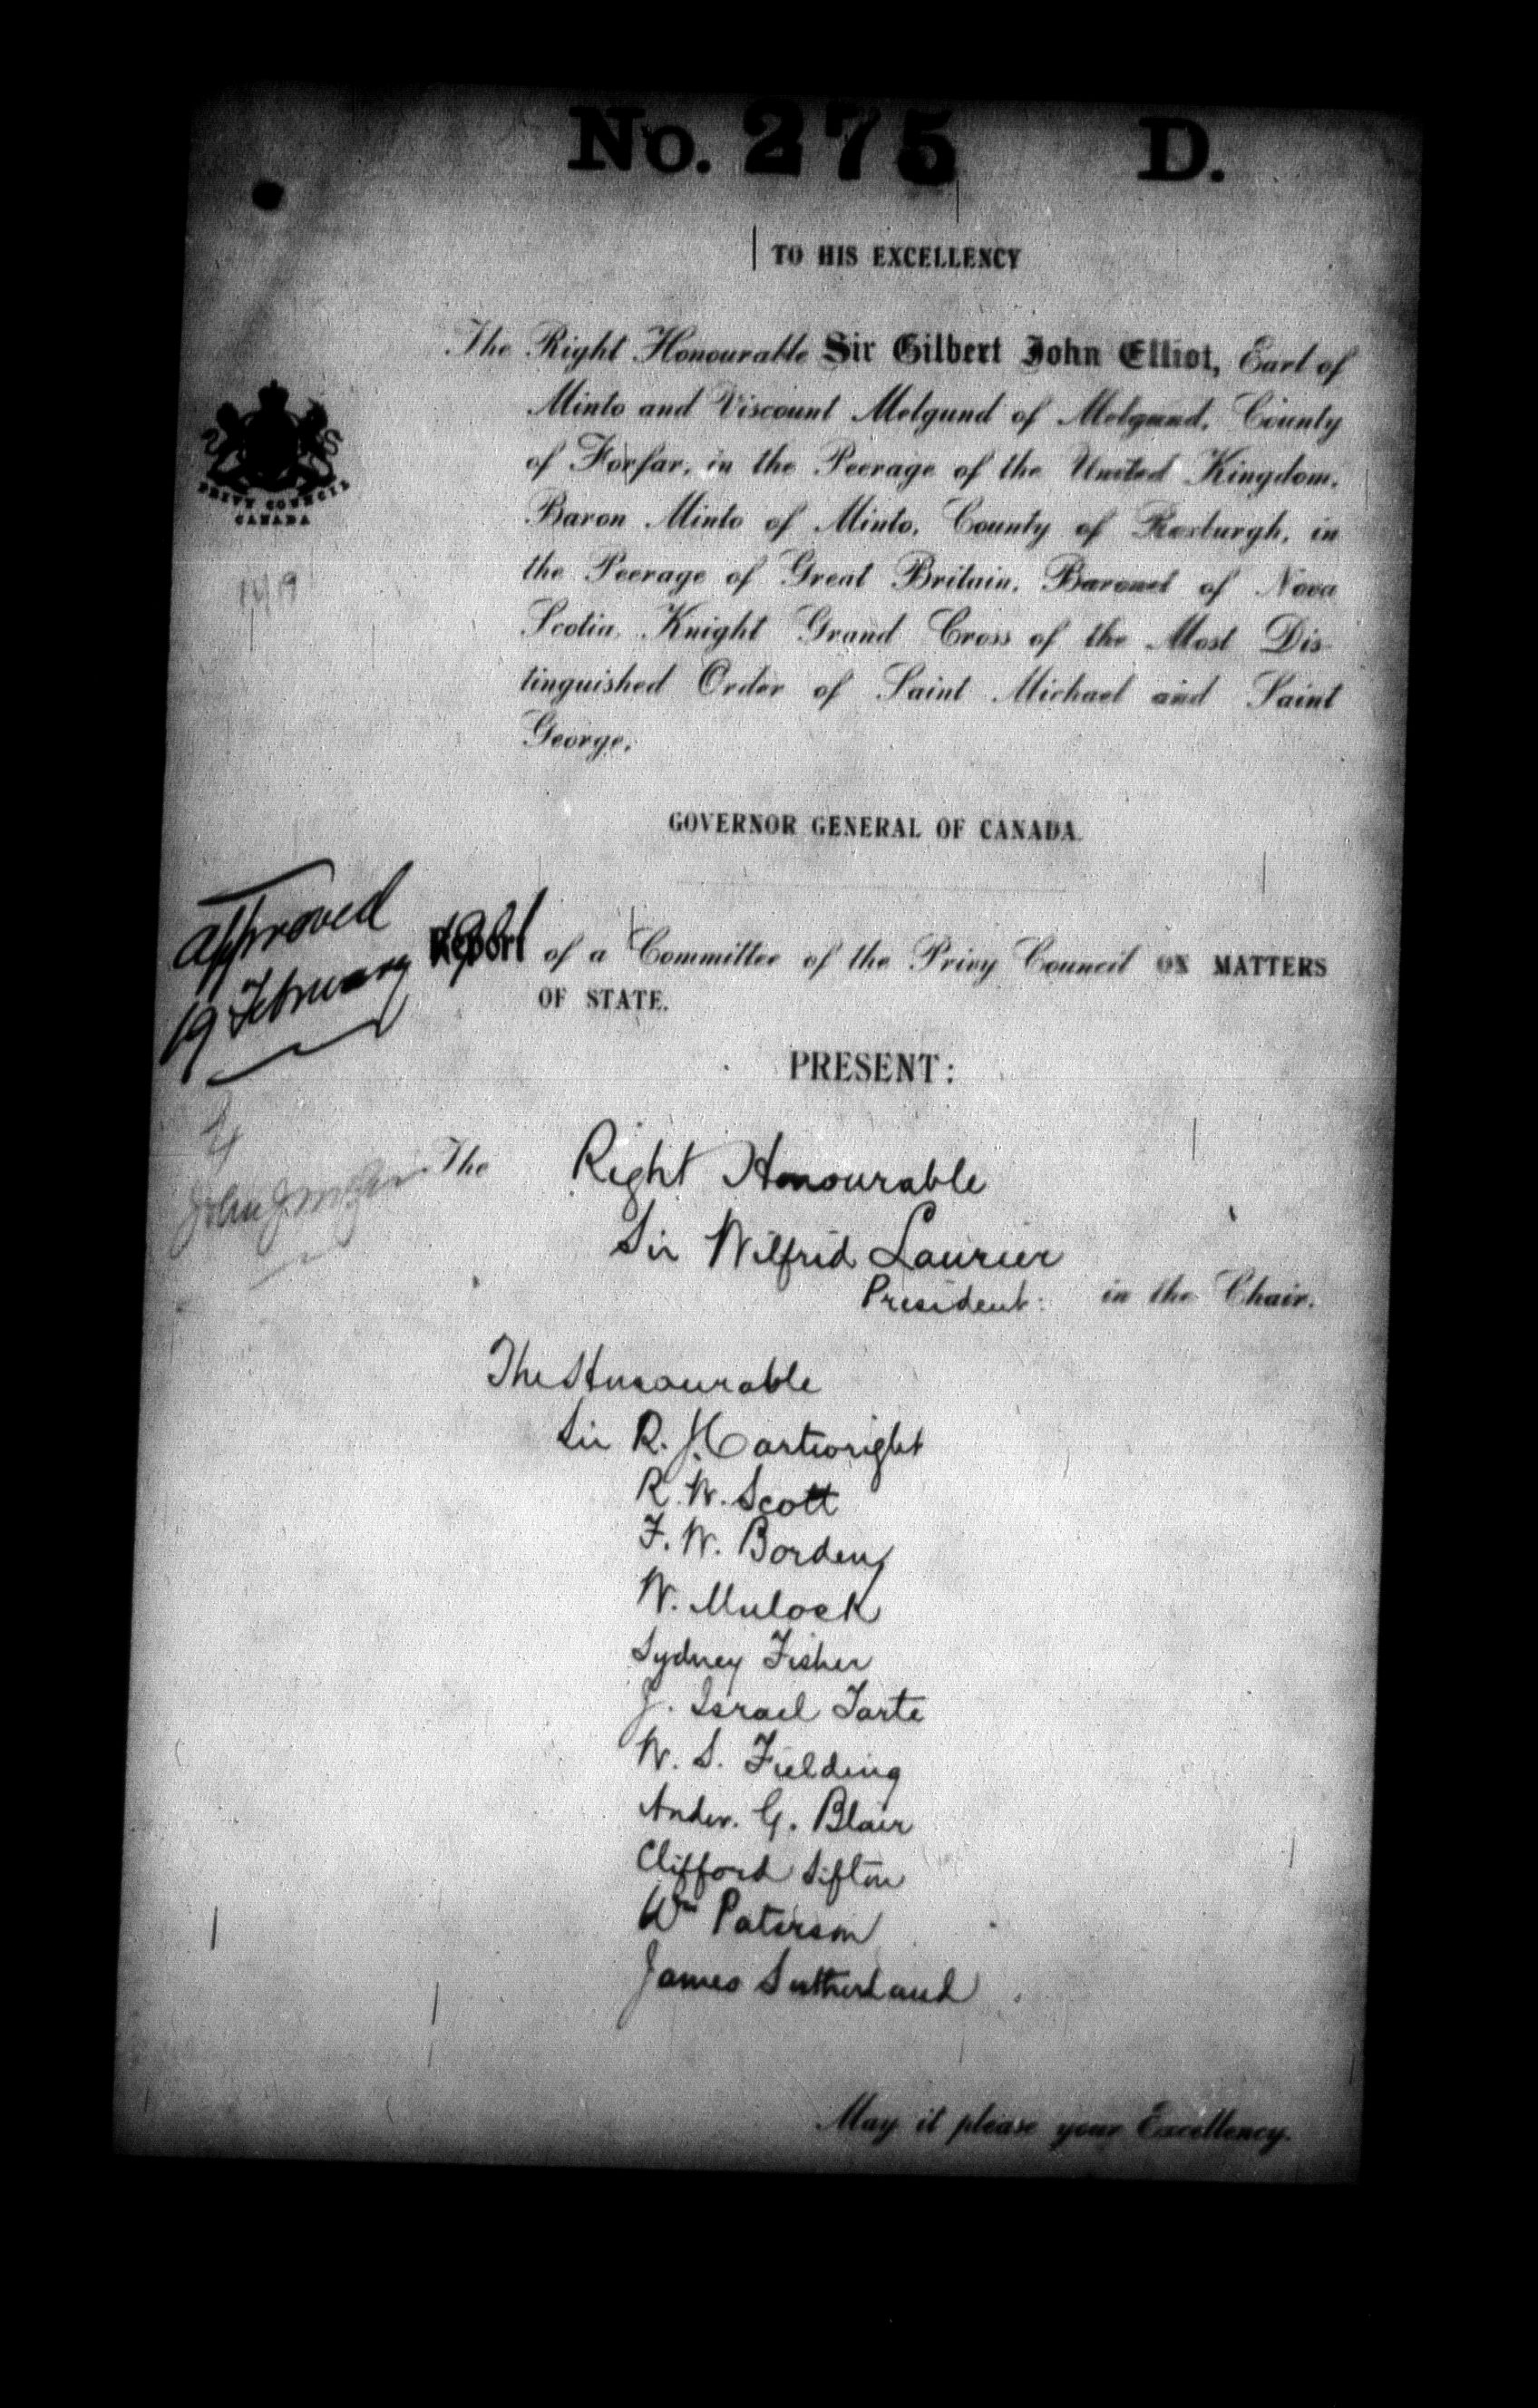 No. 275 D.
TO HIS EXCELLENCY
The Right Honourable Sir Gilbert John Elliot, Earl of
Minto and Viscount Melgund of Melgund, County
of Forfar, in the Peerage of the United Kingdom,
Baron Minto of Minto, County of Roxburgh, in
the Peerage of Great Britain, Baronet of Nova
Scotia, Knight Grand Cross of the Most Dis-
tinguished Order of Saint Michael and Saint
George,
PRIVY COUNCIL
CANADA
GOVERNOR GENERAL OF CANADA.
approved
19 February 1901
Report of a Committee of the Privy Council ON MATTERS
OF STATE.
PRESENT:
The Right Honourable
Sir Wilfrid Laurier
President: in the Chair.
The Honourable
Sir R. J. Cartwright
R. W. Scott
F. W. Borden
W. Mulock
Sydney Fisher
J. Israel Tarte
W. S. Fielding
Andw. G. Blair
Clifford Sifton
Wm Paterson
James Sutherland
May it please your Excellency.